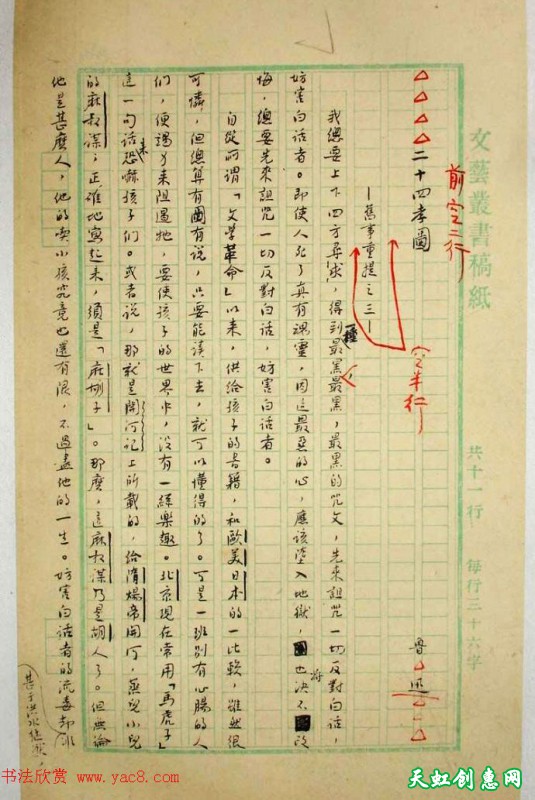 文藝叢書稿紙 共十一行 每行二十六字
前空二行
△△△△二十四孝圖 魯△迅△△△
空半行
—舊事重提之三—
我總要上下四方尋求,得到一種最黑,最黑,最黑的咒文,先來詛咒一切反對白話,
妨害白話者。即使人死了真有魂靈,因這最惡的心,應該墮入地獄,也將決不改
悔,總要先來詛咒一切反對白話,妨害白話者。
自從所謂「文学革命」以來,供給孩子的書籍,和歐美日本的一比較,雖然很
可憐,但總算有圖有說,只要能讀下去,就可以懂得的了。可是一班別有心腸的人
們,便竭力来阻遏牠,要使孩子的世界中,沒有一絲樂趣。北京現在常用「馬虎子」
這一句話来恐嚇孩子們。或者說,那就是開河記上所載的,給隋煬帝開河,蒸死小兒
的麻叔謀;正確地寫起来,須是「麻胡子」。那麼,這麻叔謀乃是胡人了。但無論
他是甚麼人,他的吃小孩究竟也還有限,不過盡他的一生。妨害白話者的流毒却
甚于洪水猛獸,
书法欣赏 www.yac8.com
天虹创惠网